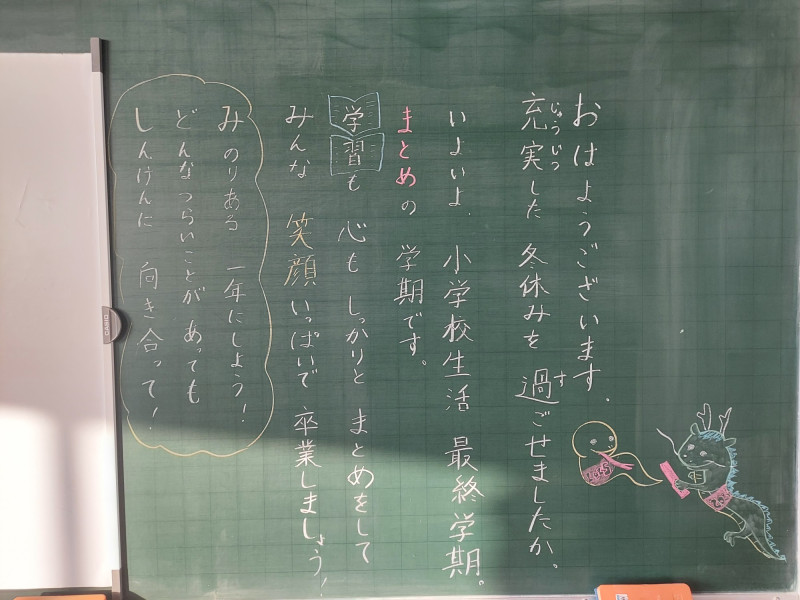 おはようございます。
充実した 冬休みを 過ごせましたか。
じゅうじつ
す
いよいよ、小学校生活 最終学期。
まとめの 学期です。
学習も 心も しっかりと まとめをして
みんな 笑顔いっぱいで 卒業しましょう！
みのりある 一年にしよう！
どんなつらいことが あっても
しんけんに 向き合って！